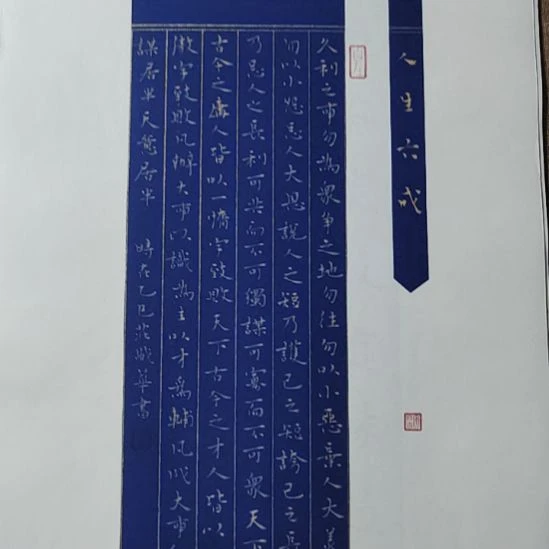 人生六戒
久利之事勿為眾爭之地勿往勿以小惡棄人大美
勿以小怨忘人大恩說人之短乃護己之短誇己之長
乃忌人之長利可共而不可獨謀可寡而不可眾天下
古今之庸人皆以一惰字致敗天下古今之才人皆以
傲字致敗凡辦大事以識為主以才為輔凡成大事
謀居半天意居半 時在乙巳莊城華書